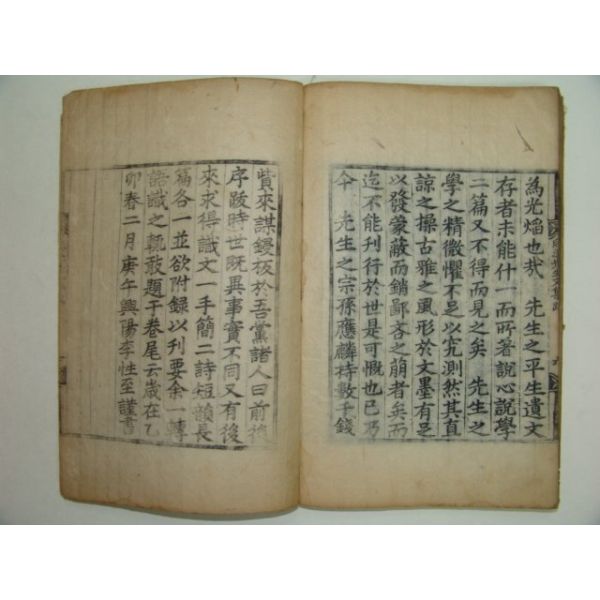 為光焰也哉 先生之平生遺文
存者未能什一而所著說心說學
二篇又不得而見之矣 先生之
學之精微懼不足以究測然其直
諒之操古雅之風形於文墨有足
以發蒙蔽而銷鄙吝之萌者矣而
迄不能刊行於世是可慨也已乃
今 先生之宗孫應麟持數千錢
貲來謀鋟板於吾黨諸人曰前後
序跋時世旣異事實不同又有後
來求得識文一手簡二詩短韻長
篇各一並欲附錄以刊要余一轉
語識之輒敢題于卷尾云歲在乙
卯春二月庚午興陽李性至謹書